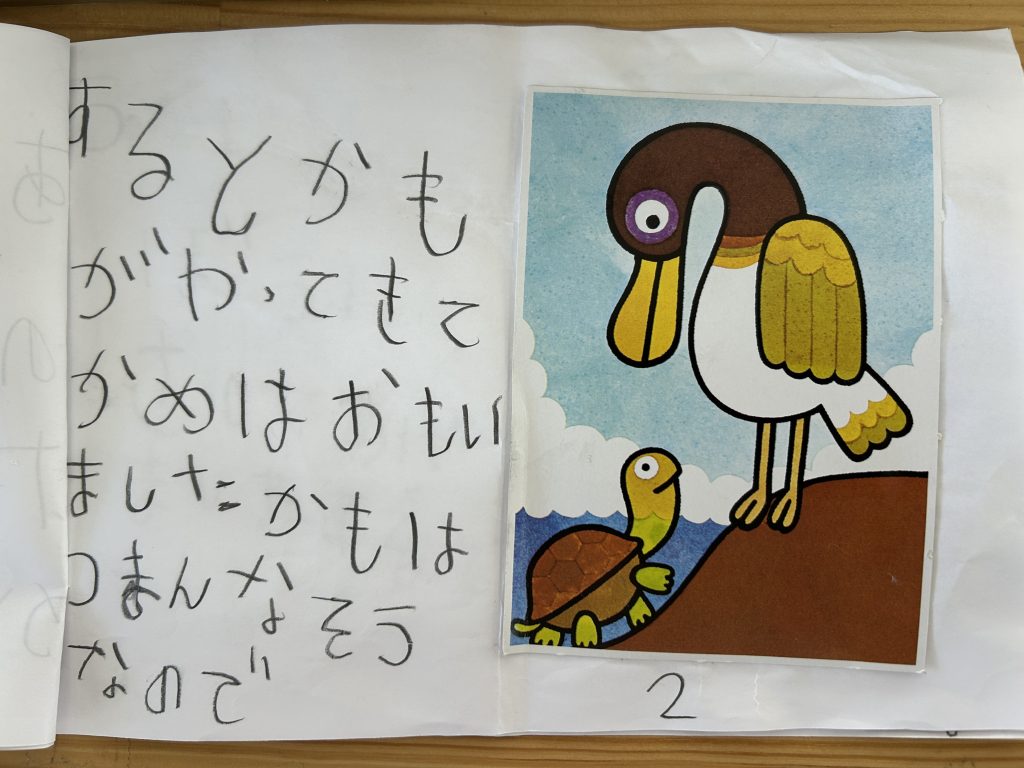 するとかも
がやってきて
かめはおもい
ましたかもは
つまんなそう
なので
2